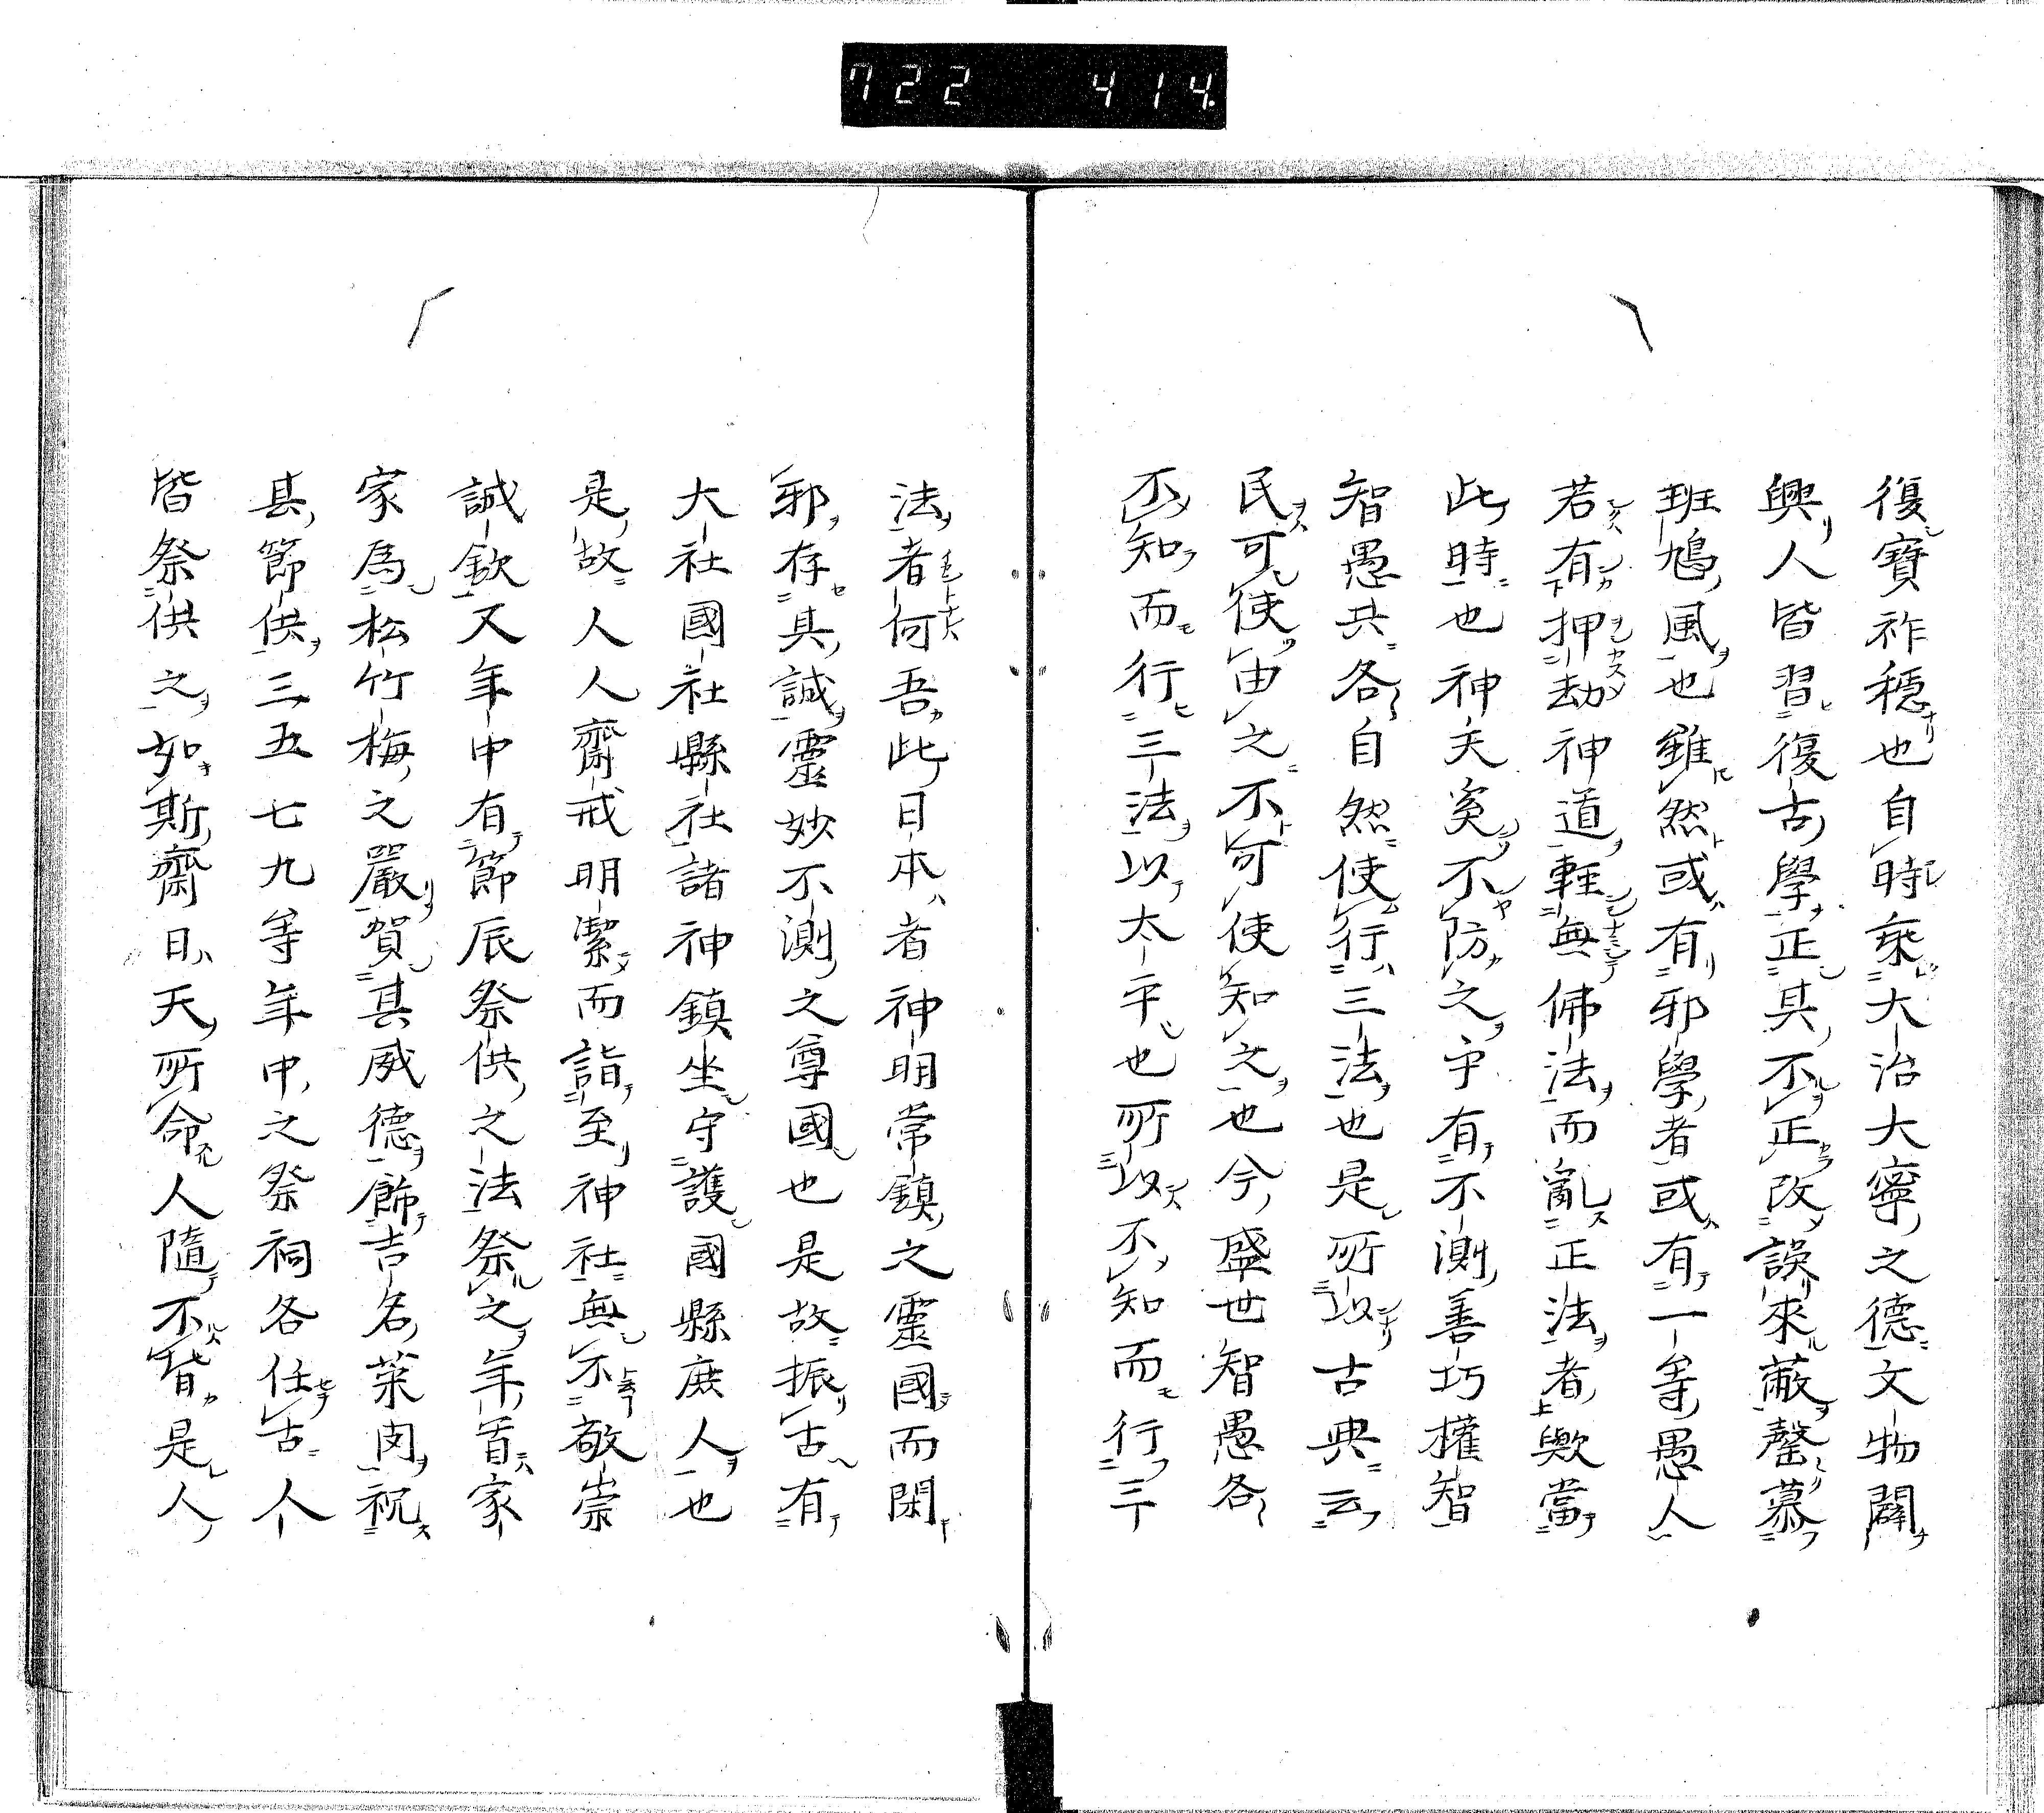 722 414.
復寶祚穩也自時乘大治大寧之德文物闢
興人皆習復古學正其不正改誤來蔽罄慕
班鳩風也雖然或有邪學者或有一等愚人
若有押劫神道輕無佛法而亂正法者歟當
此時也神夫奚不防之乎有不測善巧權智
智愚共各自然使行三法也是所以古典云
民可使由之不可使知之也今盛世智愚各
不知而行三法以太平也所以不知而行三
法者何吾此日本者神明常鎮之靈國而閑
邪存其誠靈妙不測之尊國也是故振古有
大社國社縣社諸神鎮坐守護國縣庶人也
是故人人齋戒明潔而詣至神社無不敬崇
誠欽又年中有節辰祭供之法祭之年首家
家爲松竹梅之嚴賀其威德飾吉名菜肉祝
其節供三五七九等年中之祭祠各任古人
皆祭供之如斯齋日天所命人隨不背是人